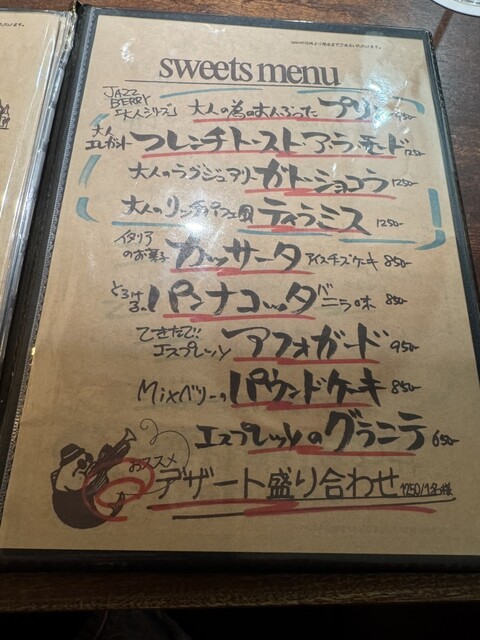 sweets menu
JAZZ BERRY 「大人シリーズ」
大人の為の大人ぶった プリン 950-
大人エレガント フレンチトースト・ア・ラ・モード 1250-
大人のラグジュアリー ガトーショコラ 1250-
ティラミス 1250-
イタリアのお菓子 カッサータ アイスチーズケーキ 850-
とろける。パンナコッタ バニラ味 850-
できたて!! エスプレッソ アフォガード 950-
Mixベリーの パウンドケーキ 850-
エスプレッソのグラニテ 650-
おススメ
デザート盛り合わせ 1250/1名様